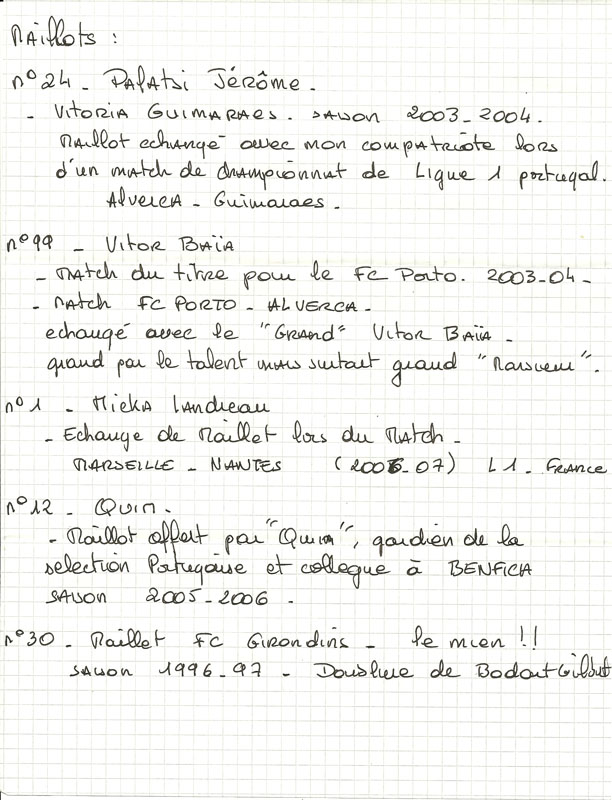 Maillots :
n°24 - Palatsi Jérôme.
- Vitoria Guimaraes. saison 2003-2004.
Maillot echangé avec mon compatriote lors
d'un match de championnat de Ligue 1 portugal.
Alverca - Guimaraes.
n°99 - Vitor Baïa
- Match du titre pour le FC Porto. 2003-04-
- Match FC PORTO - ALVERCA -
echangé avec le "Grand" Vitor Baïa -
grand par le talent mais surtout grand "Monsieur".
n°1 - Micka Landreau
- Echange de Maillot lors du Match -
MARSEILLE - NANTES (2006-07) L1 - France
n°12 - Quim.
- Maillot offert par "Quim", gardien de la
selection Portugaise et collegue à BENFICA
saison 2005-2006.
n°30 - Maillot FC Girondins - le mien !!
saison 1996-97 - Doublure de Bodart Gilbert